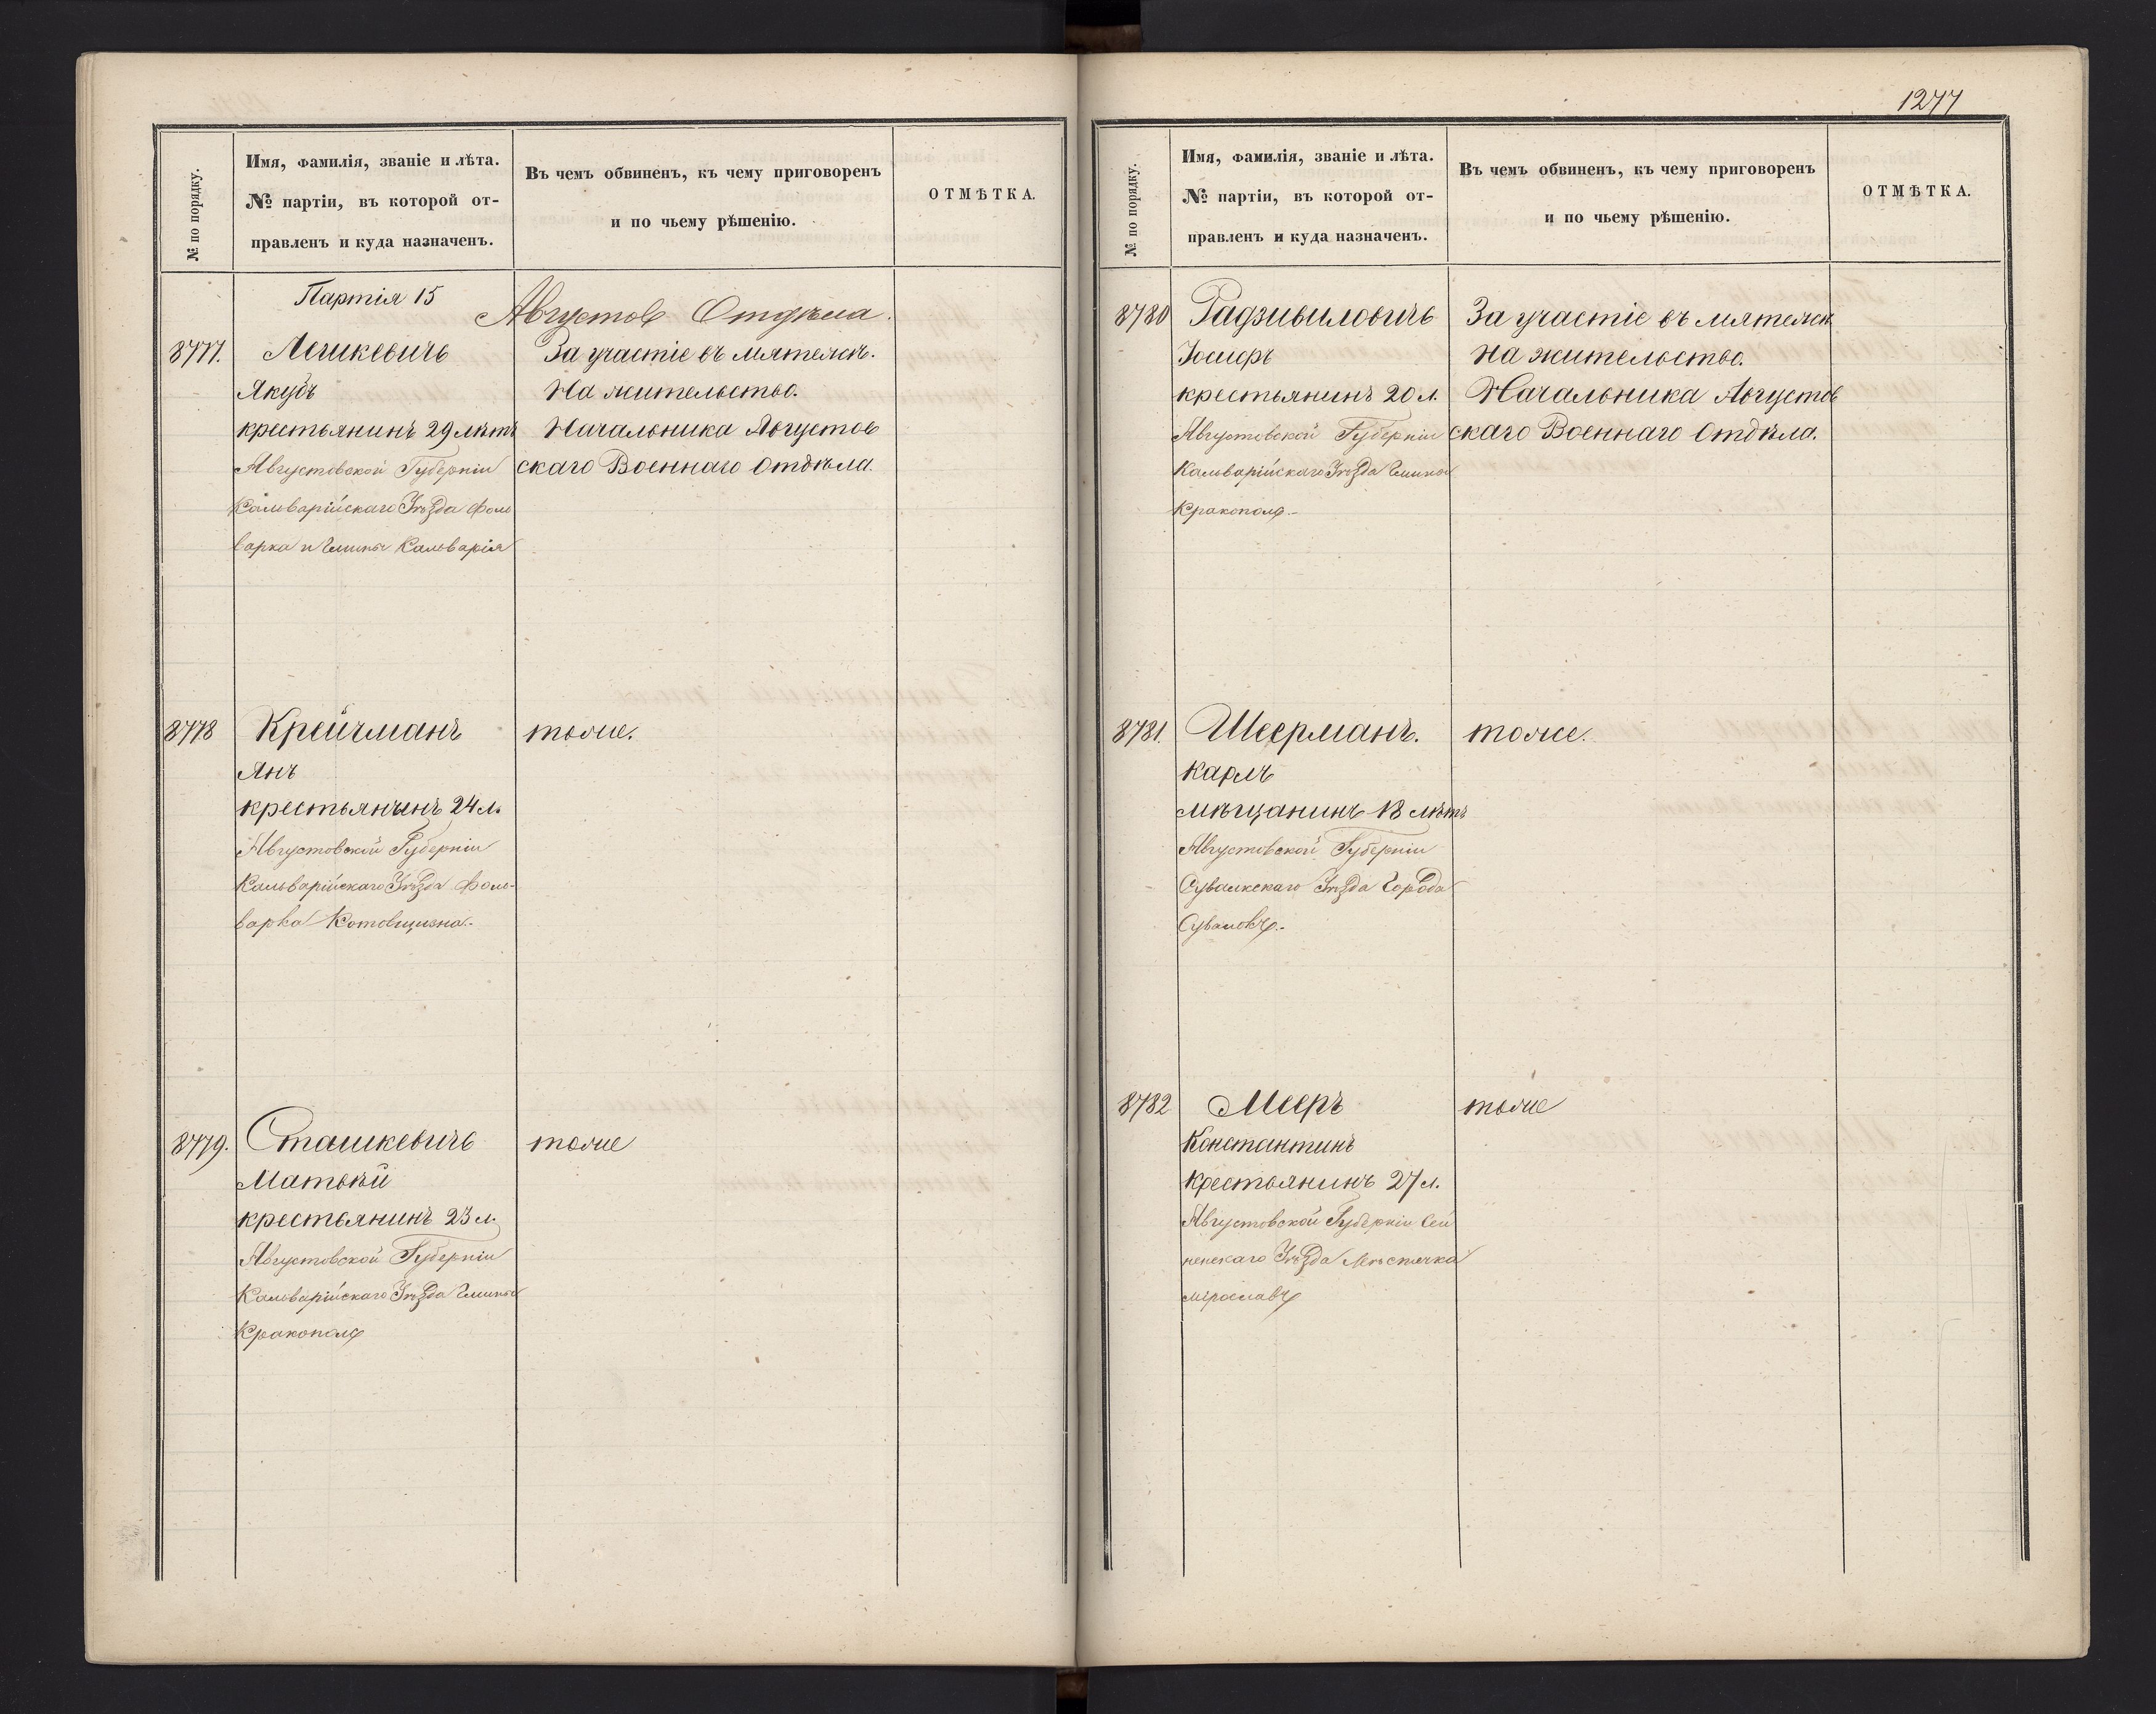 № по порядку.
Имя, фамилія, званіе и лѣта.
№ партіи, въ которой от-
правленъ и куда назначенъ.
Въ чемъ обвиненъ, къ чему приговоренъ
и по чьему рѣшенію.
ОТМѢТКА.
Партія 15
Августов Отдѣла.
8777.
Лешкевичъ
Якубъ
крестьянинъ 29 лѣтъ
Августовской Губерніи
Кальварійскаго Уѣзда Фоль
варка и Гмины Кальварія
За участіе въ мятежѣ.
На жительство.
Начальника Августов
скаго Военнаго Отдѣла.
8778
Крейчманъ
Янъ
крестьянинъ 24 л.
Августовской Губерніи
Кальварійскаго Уѣзда Фоль-
варка Котовщизна.-
тоже.
8779.
Сташкевичъ
Матвѣй
крестьянинъ 23 л.
Августовской Губерніи
Кальварійскаго Уѣзда Гмины
Кракополь
тоже
1277
№ по порядку.
Имя, фамилія, званіе и лѣта.
№ партіи, въ которой от-
правленъ и куда назначенъ.
Въ чемъ обвиненъ, къ чему приговоренъ
и по чьему рѣшенію.
ОТМѢТКА.
8780
Радзивиловичъ
Іосифъ
крестьянинъ 20 л.
Августовской Губерніи
Кальварійскаго Уѣзда Гмины
Кракополь.-
За участіе въ мятежѣ
на жительство.
Начальника Августов
скаго Военнаго Отдѣла.
8781.
Шеерманъ.
Карлъ
мѣщанинъ 18 лѣтъ
Августовской Губерніи
Сувалкскаго Уѣзда Города
Сувалокъ.-
тоже.
8782
Мееръ
Константинъ
Крестьянинъ 27 л.
Августовской Губерніи Сей
ненскаго Уѣзда Мѣстечка
Мирославъ
тоже